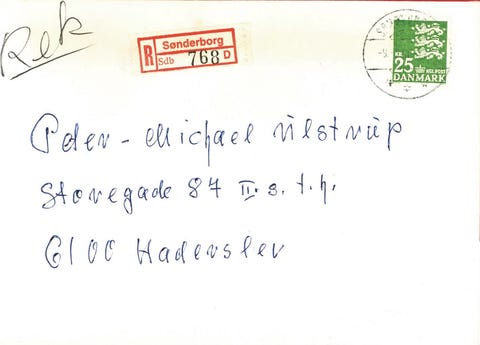 Rek
Sønderborg
R Sdb 768 D
KR. 25 KGL POST
DANMARK
Peter-Michael Ulstrup
Storegade 87 II. s. t.h.
6100 Haderslev